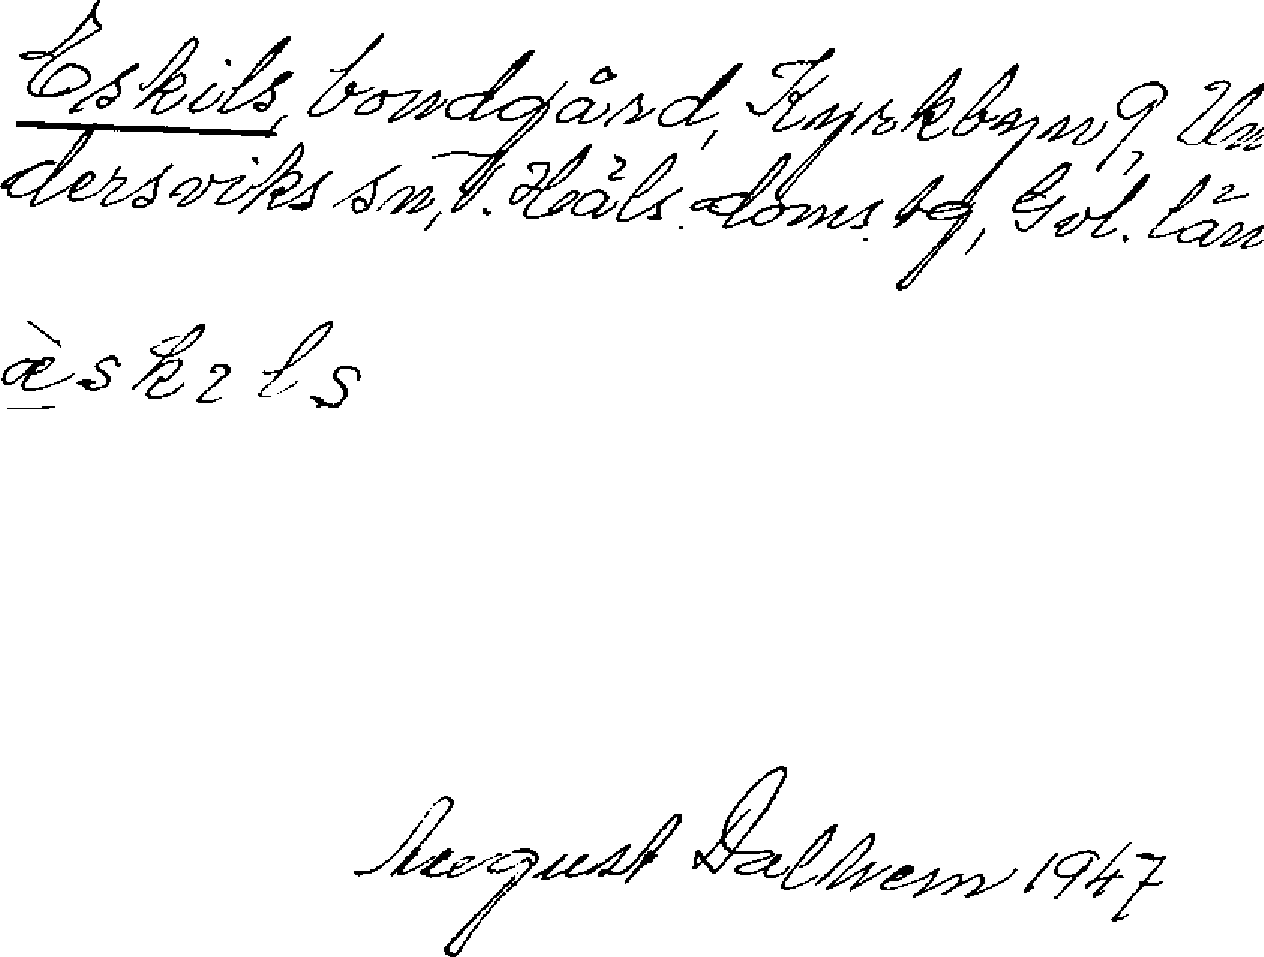 Eskils, bondgård, Kyrkbyn 9, Un
dersviks sn, V. Häls. doms. tg, Gvl. län
æ̀skɩls
August Dalhem 1947